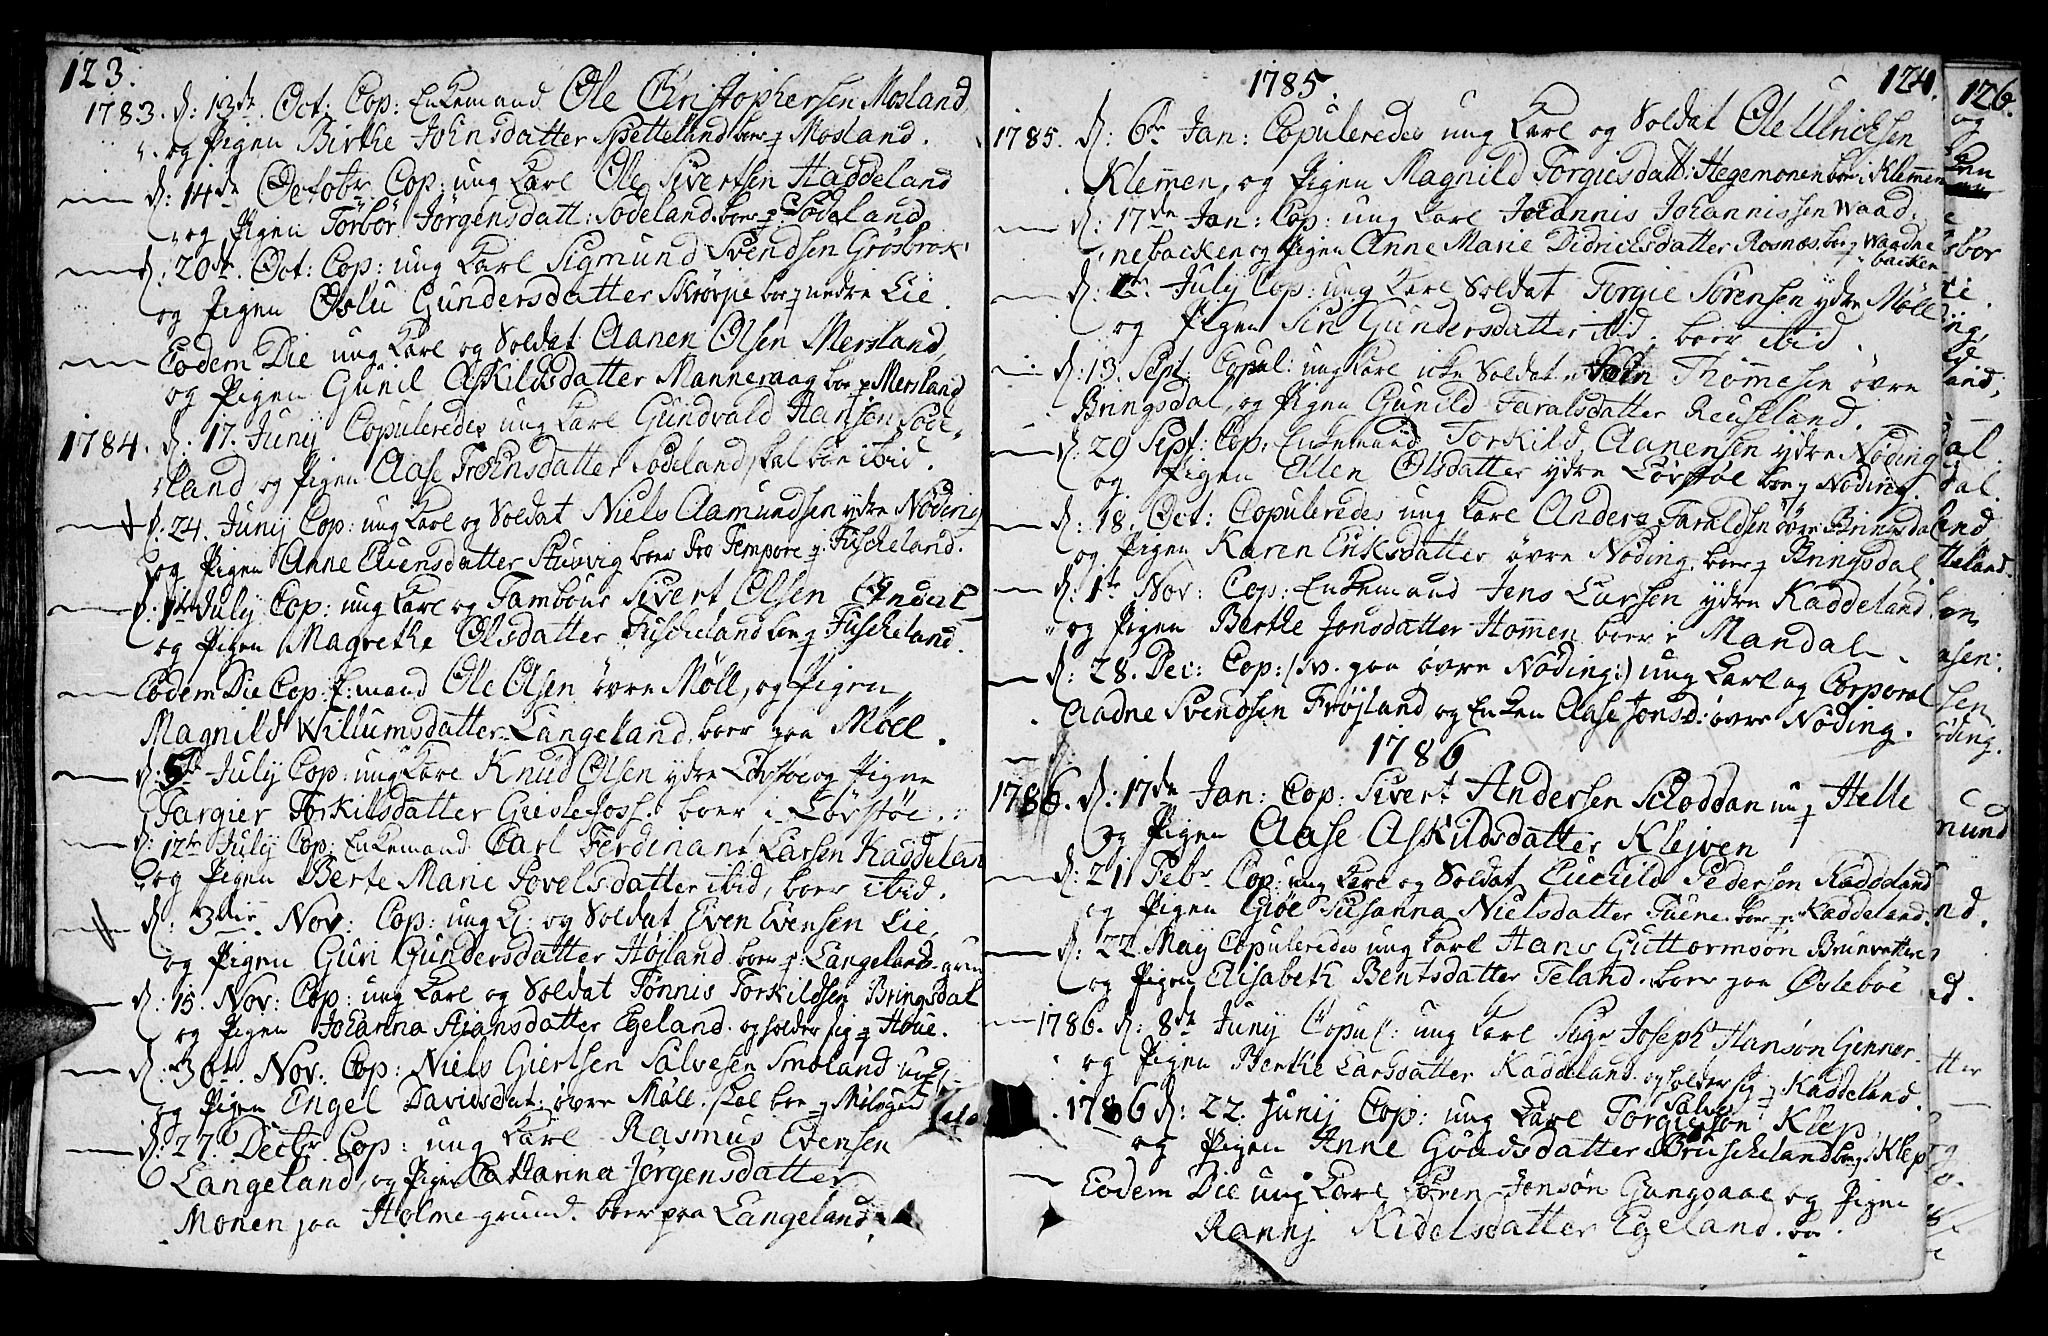 123.
1783. d: 13de Oct: Cop: Enkemand Ole Christophersen Mosland
og Pigen Birthe Johnsdatter Spetteland boer p Mosland.
d: 14de Octobr Cop: ung Karl Ole Sivertsen Haddeland
og Pigen Torbor Jörgensdatt: Sodeland boer p Sodeland
d. 20de. Oct: Cop: ung Karl Sigmund Svendsen Grosbrok
og Pigen Oslu Gundersdatter Skrövje boer p nedre Lie.
Eodem Die ung Karl og Soldat Aanen Olsen Mersland,
og Pigen Gunil Askildsdatter Manneraag boer p Mersland
1784. d: 17. Junij Copuleredes ung Karl Gundvald Hansen Sode„
land og Pigen Aase Trohnsdatter Sodeland, skal boe ibid.
d: 24. Junij Cop: ung Karl og Soldat Niels Aamundsen ydre Nöding
og Pigen Anne Evensdatter Stuvig boer Pro Tempore p: Fuskeland.
d. 1te July Cop: ung Karl og Tambour Sivert Olsen
og Pigen Magrethe Olsdatter Fuskeland boer p Fuskeland.
Eodem Die Cop: E:mand Ole Olsen övre Möll, og Pigen
Magnild Willumsdatter Langeland, boer paa Möll.
d: July Cop: ung Karl Knud Olsen ydre Lövstöe og Pigen
Targier Torkilsdatter Gieslefoss. boer i Lövstöe.
d: 12te July Cop: Enkemand Carl Ferdinant Larsen Kaddeland
og Pigen Berte Marie Povelsdatter ibid, boer ibid.
d: 3die Nov: Cop: ung K: og Soldat Even Evensen Lie,
og Pigen Guri Gundersdatter Höjland boer p: Langeland
d: 15. Nov: Cop: ung Karl og Soldat Tönnis Torkildsen Bringsdal
og Pigen Johanna Stiansdatter Egeland. og holder sig p Houe.
d: 30te. Nov: Cop: Niels Giertsen Salvesen Smoland ung K:
og Pigen Engel Davidsdat: övre Möll. skal boe p
d: 27. Decbr Cop: ung Karl Rasmus Evensen
Langeland, og Pigen Catharina Jörgensdatter
Monen paa Holme-grund. boer paa Langeland.
1785. 124.
1785. d: 6te Jan: Copuleredes ung Karl og Soldat Ole Ulrichsen
Klemmen, og Pigen Magnild Torgiusdatt: Hegemonen boer i Klemmen
d: 17de Jan: Cop: ung Karl Johannis Johannissen Waad„
nebacken og Pigen Anne Marie Didrichsdatter Rosnæs. boer p Waadne
backen
d: July Cop: ung Karl Soldat Torgie Sörensen ydre Möll
og Pigen Siri Gundersdatter ibid. boer ibid.
d: 13. Sept: Copul: ung Karl icke Soldat John Thommesen övre
Bringsdal, og Pigen Gunild Taralsdatter Reuseland.
d: 29 Sept: Cop: Enkemand Torkild Aanensen ydre Nöding
og Pigen Ellen Olsdatter ydre Lövstöl boer p Nöding.
d: 18. Oct: Copuleredes ung Karl Anders Taraldsen övre Bringsdal
og Pigen Karen Eriksdatter övre Nöding, boer p Bringsdal
d: 1te Nov: Cop: Enkemand Jens Larsen ydre Kaddeland
og Pigen Berthe Jonsdatter Hommen boer i Mandal.
d: 28. Dec: Cop: (N. paa övre Nöding:) ung Karl og Corporal
Aadne Svendsen Fröjland og Enken Aase Jonsd: övre Nöding.
1786
1786. d: 17de Jan: Cop: Sivert Andersen Skoddan p Helle
og Pigen Aase Askildsdatter Klejven
d: 21 Febr. Cop: ung Karl og Soldat Euchild Pedersen Kaddeland
og Pigen Giöe Susanna Nielsdatter Tuene. boer p. Kaddeland.
d: 22 May Copuleredes ung Karl Hans Guttormsön Brunvatten
og Pigen Elisabeth Bentsdatter Teland. boer paa Ösleböe
1786. d: 8de Junij Copul: ung Karl Joseph Hansön
og Pigen Berthe Larsdatter Kaddeland. og holder sig p Kaddeland.
1786 d: 22. Junij Cop: ung Karl Torgie Salvesön Klep
og Pigen Anne Goudsdatter Bruskeland boer p Klep
Eodem Die ung Karl Sören Jensön Gangsaae og Pigen
Rannj Kidelsdatter Egeland. bo
126.